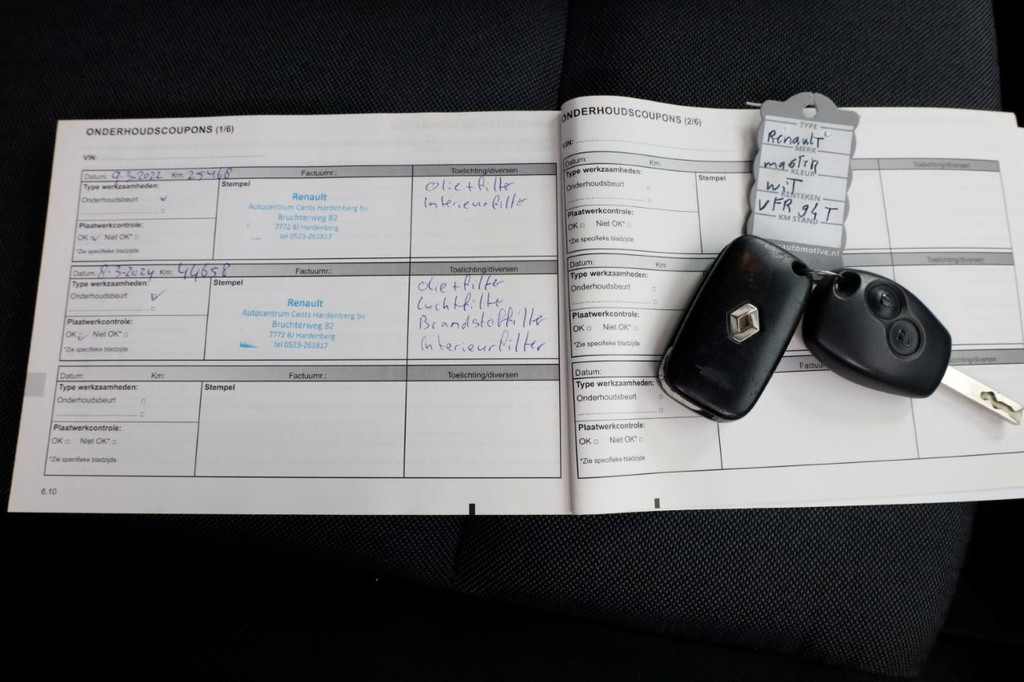 ONDERHOUDSCOUPONS (1/6)
VIN:
Datum: 9-3-2022 Km: 25468
Factuurnr.:
Toelichting/diversen
Type werkzaamheden:
Onderhoudsbeurt
Stempel
Renault
Autocentrum Cents Hardenberg bv
Bruchterweg 82
7772 BJ Hardenberg
tel 0523-261817
olie + filter
Interieurfilter
Plaatwerkcontrole:
OK Niet OK*
*Zie specifieke bladzijde
Datum: 8-3-2024 Km: 44658
Factuurnr.:
Toelichting/diversen
Type werkzaamheden:
Onderhoudsbeurt
Stempel
Renault
Autocentrum Cents Hardenberg bv
Bruchterweg 82
7772 BJ Hardenberg
tel 0523-261817
olie + filter
Luchtfilter
Brandstoffilter
Interieurfilter
Plaatwerkcontrole:
OK Niet OK*
*Zie specifieke bladzijde
Datum: Km:
Factuurnr.:
Toelichting/diversen
Type werkzaamheden:
Onderhoudsbeurt
Stempel
Plaatwerkcontrole:
OK Niet OK*
*Zie specifieke bladzijde
6.10
ONDERHOUDSCOUPONS (2/6)
VIN:
Datum: Km:
Toelichting/diversen
Type werkzaamheden:
Onderhoudsbeurt
Stempel
Plaatwerkcontrole:
OK Niet OK*
*Zie specifieke bladzijde
Datum:
Toelichting/diversen
Type werkzaamheden:
Onderhoudsbeurt
Plaatwerkcontrole:
OK Niet OK*
*Zie specifieke bladzijde
Datum:
Toelichting/diversen
Type werkzaamheden:
Onderhoudsbeurt
Plaatwerkcontrole:
OK Niet OK*
*Zie specifieke bladzijde
TYPE
Renault
MERK
KLEUR
wit
KENTEKEN
VFR 94 T
KM STAND